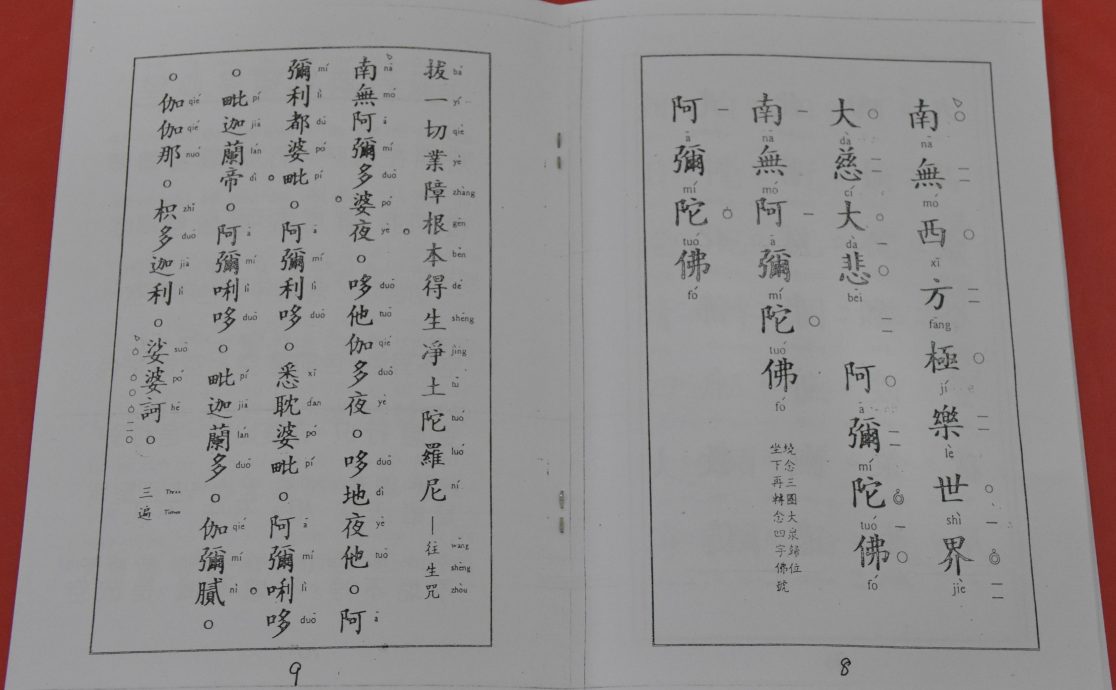 南無西方極樂世界
nā mó xī fāng jí lè shì jiè
大慈大悲 阿彌陀佛
dà cí dà bēi ā mí tuó fó
南無阿彌陀佛
nā mó ā mí tuó fó
阿彌陀佛
ā mí tuó fó
繞念三圈大眾歸位
坐下再轉念四字佛號
8
拔一切業障根本得生淨土陀羅尼—往生咒
bá yí qiè yè zhàng gēn běn dé shēng jìng tǔ tuó luó ní wǎng shēng zhòu
南無阿彌多婆夜。哆他伽多夜。哆地夜他。阿
nā mó ā mí duō pó yè duō tuō qié duō yè duō dì yè tuō ā
彌利都婆毗。阿彌利哆。悉耽婆毗。阿彌唎哆
mí lì dū pó pí ā mí lì duō xī dān pó pí ā mí lì duō
。毗迦蘭帝。阿彌唎哆。毗迦蘭多。伽彌膩。
pí jiā lán dì ā mí lì duō pí jiā lán duō qié mí nì
。伽伽那。枳多迦利。娑婆訶。
qié qié nuó zhǐ duō jiā lì suō pó hē
三遍
Three Times
9